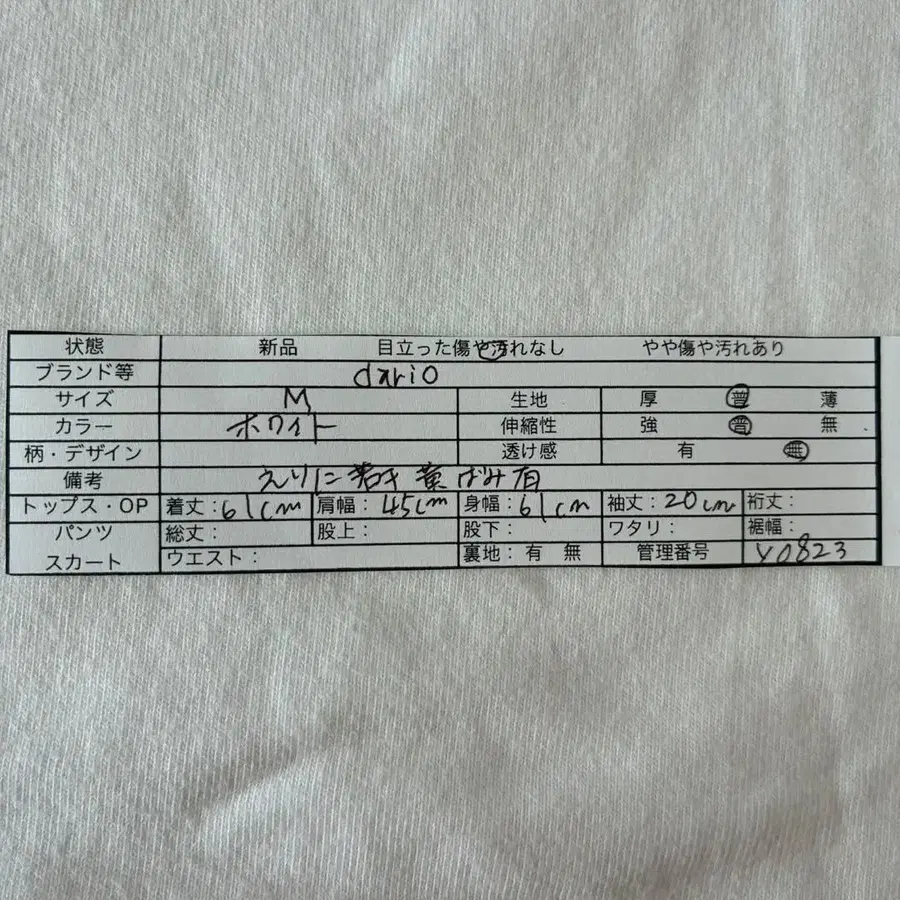 状態 新品 目立った傷や汚れなし やや傷や汚れあり
ブランド等 dario
サイズ M 生地 厚 普 薄
カラー ホワイト 伸縮性 強 普 無
柄・デザイン 透け感 有 無
備考 えりに若干黄ばみ有
トップス・OP 着丈:61cm 肩幅:45cm 身幅:61cm 袖丈:20cm 裄丈:
パンツ 総丈: 股上: 股下: ワタリ: 裾幅:
スカート ウエスト: 裏地:有 無 管理番号 Y0823